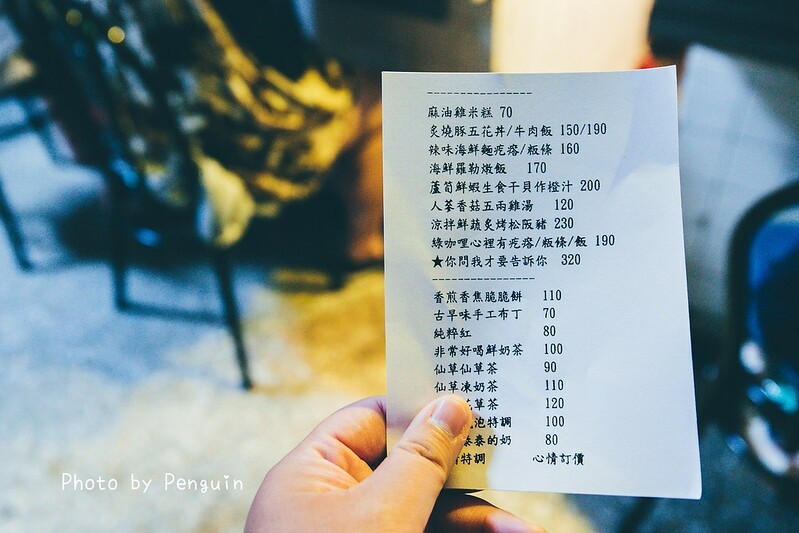 麻油雞米糕 70
炙燒豚五花丼/牛肉飯 150/190
辣味海鮮麵疙瘩/粄條 160
海鮮羅勒燉飯 170
蘆筍鮮蝦生食干貝作橙汁 200
人蔘香菇五兩雞湯 120
涼拌鮮蔬炙烤松阪豬 230
綠咖哩心裡有疙瘩/粄條/飯 190
★你問我才要告訴你 320
香煎香焦脆脆餅 110
古早味手工布丁 70
純粹紅 80
非常好喝鮮奶茶 100
仙草仙草茶 90
仙草凍奶茶 110
花草茶 120
泡特調 100
泰泰的奶 80
特調 心情訂價
Photo by Penguin